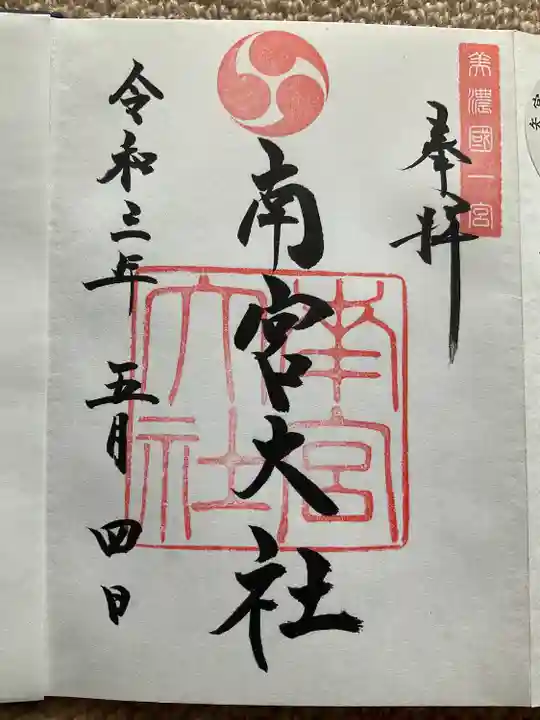 美濃國一宮
奉拝
南宮大社
南宮大社
令和三年 五月 四日